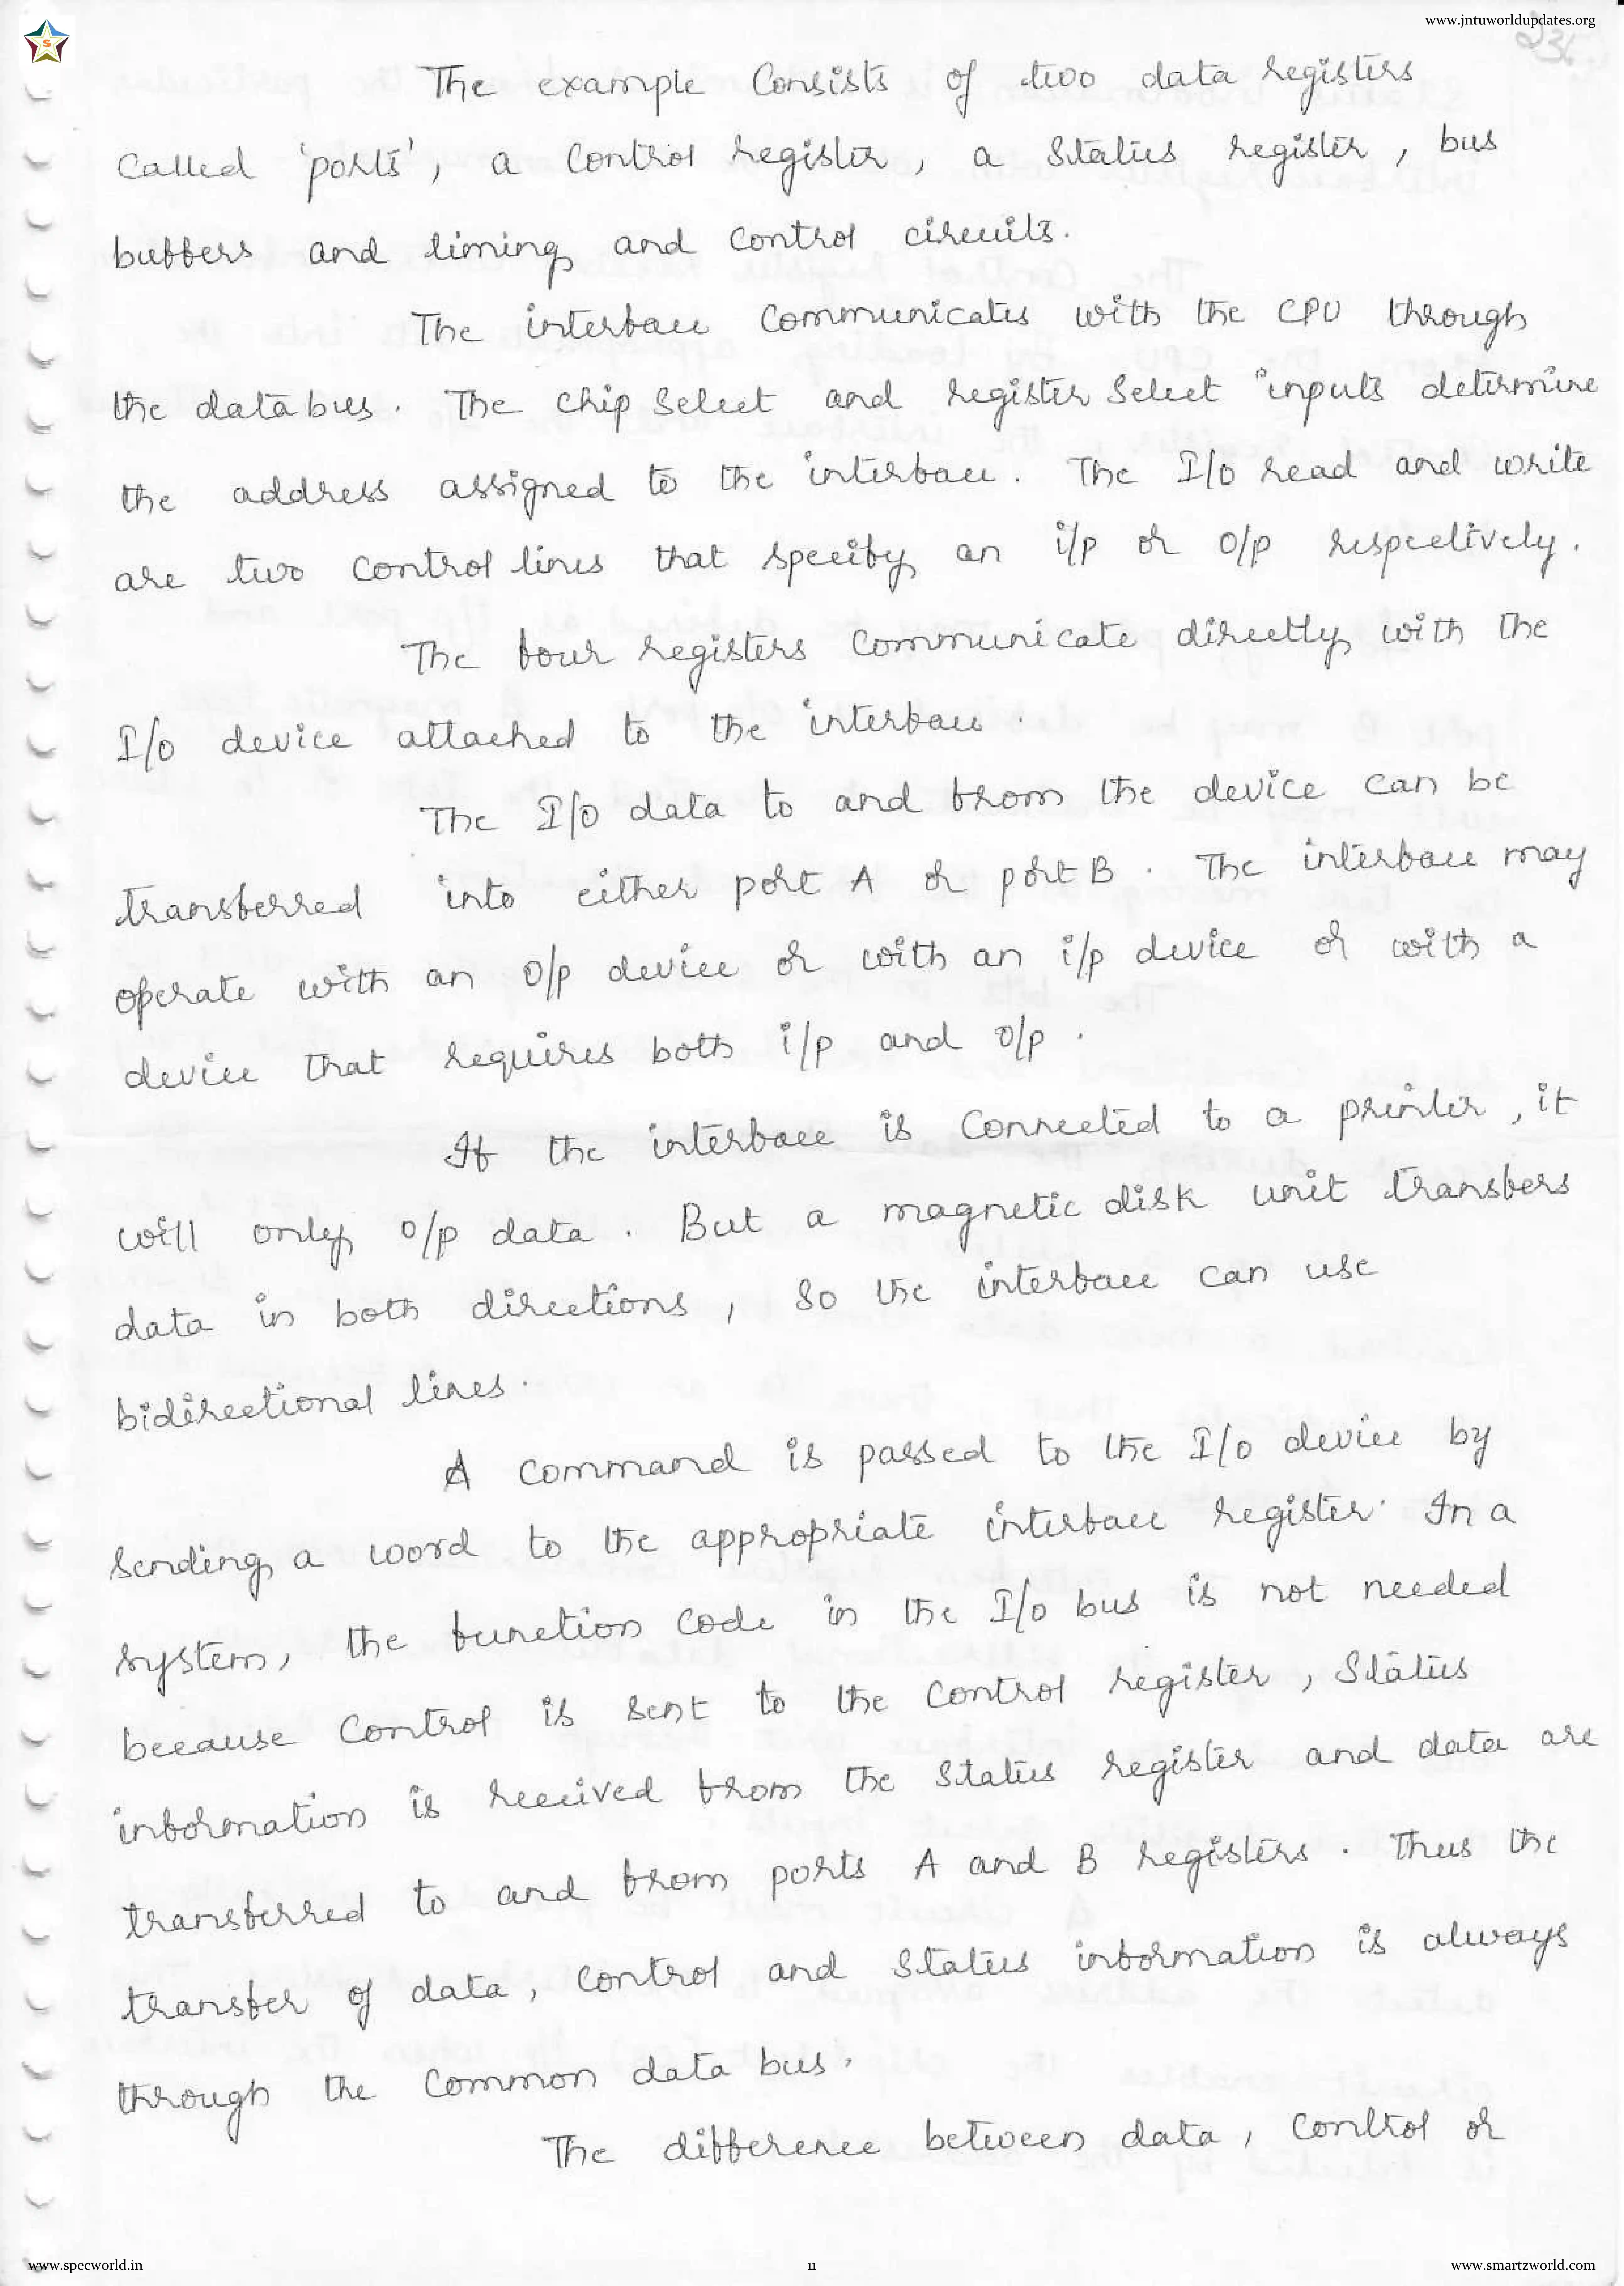 www.jntuworldupdates.org
S
The example Consists of two data registers
Called 'ports', a Control register, a Status register, bus
buffers and timing and control circuits.
The interface Communicates with the CPU through
the data bus. The chip Select and register Select inputs determine
the address assigned to the interface. The I/o read and write
are two control lines that specify an i/p or o/p respectively.
The four registers Communicate directly with the
I/o device attached to the interface.
The I/o data to and from the device can be
transferred into either port A or port B. The interface may
operate with an o/p device or with an i/p device or with a
device that requires both i/p and o/p.
If the interface is Connected to a printer, it
will only o/p data. But a magnetic disk unit transfers
data in both directions, So the interface can use
bidirectional lines.
A command is passed to the I/o device by
Sending a word to the appropriate interface register. In a
System, the function code in the I/o bus is not needed
because Control is Sent to the Control register, Status
information is received from the Status register and data are
transferred to and from ports A and B registers. Thus the
transfer of data, control and Status information is always
through the Common data bus.
The difference between data, Control or
www.specworld.in
11
www.smartzworld.com